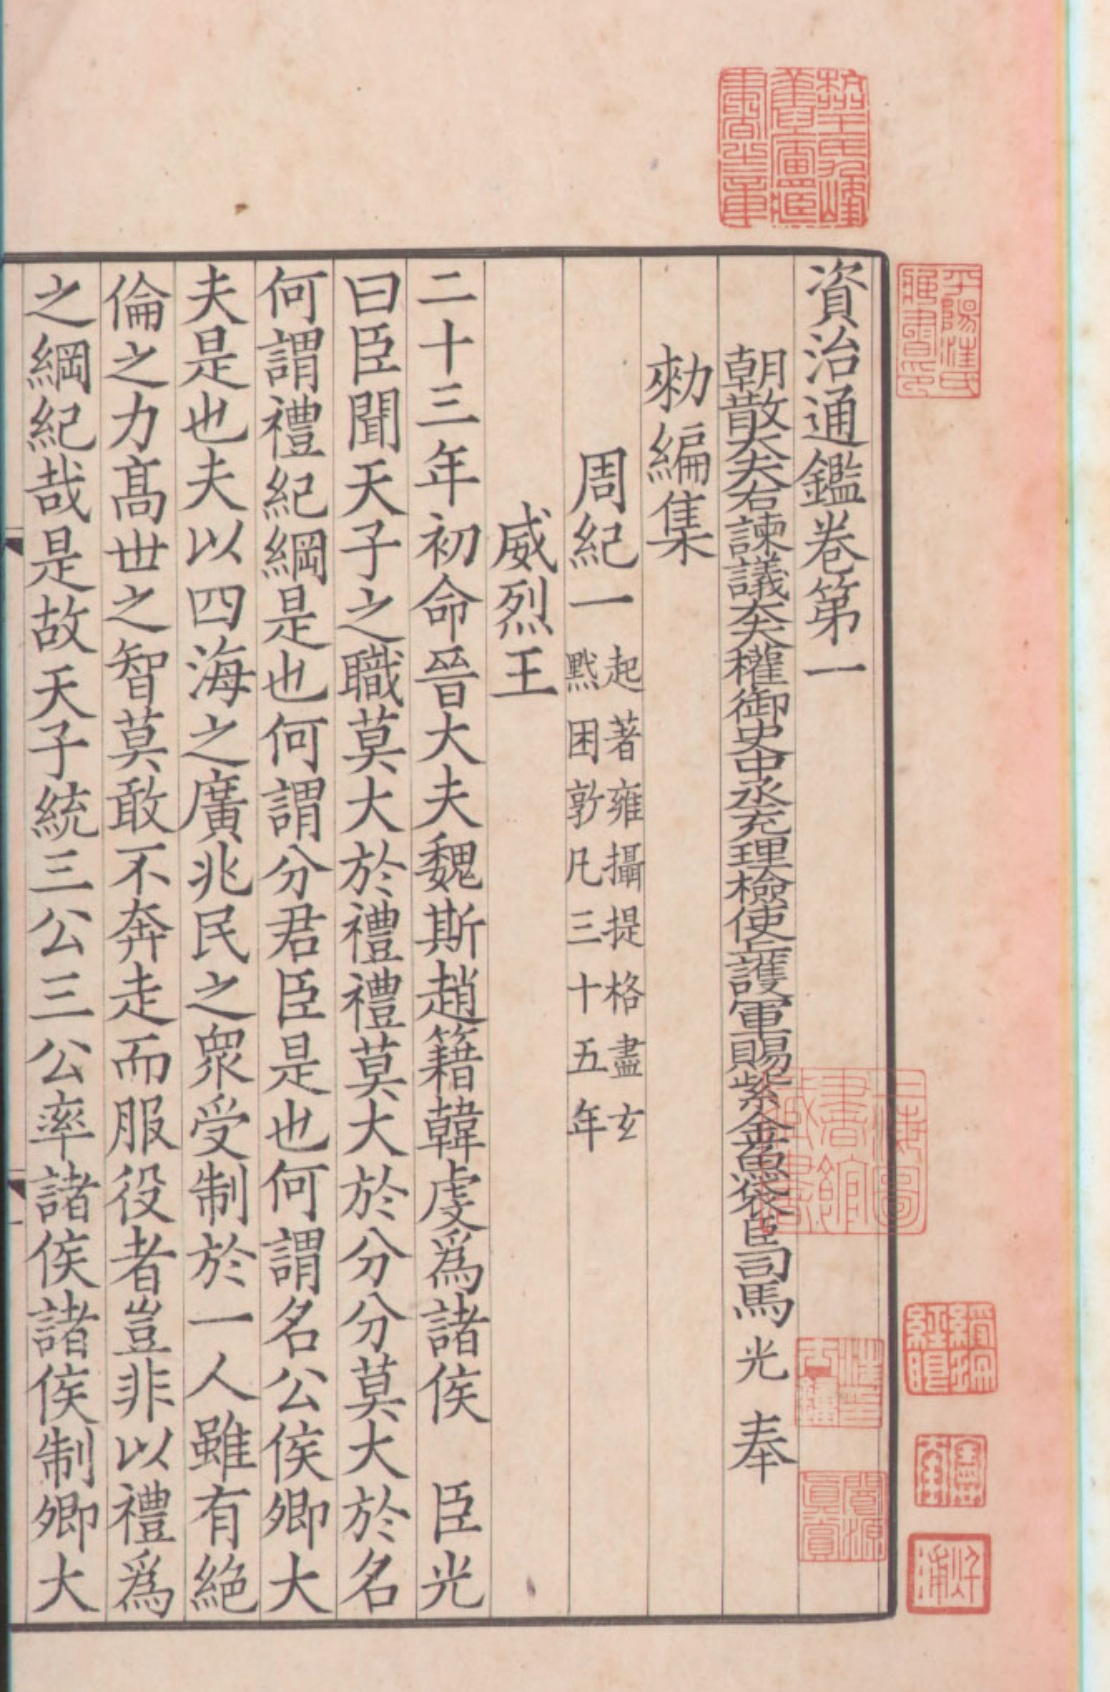 資治通鑑卷第一
朝散大夫右諫議大夫權御史中丞充理檢使上護軍賜紫金魚袋臣司馬 光 奉
勑編集
周紀一 起著雍攝提格盡玄
黓困敦凡三十五年
威烈王
二十三年初命晉大夫魏斯趙籍韓虔爲諸侯 臣光
曰臣聞天子之職莫大於禮禮莫大於分分莫大於名
何謂禮紀綱是也何謂分君臣是也何謂名公侯卿大
夫是也夫以四海之廣兆民之衆受制於一人雖有絕
倫之力髙世之智莫敢不奔走而服役者豈非以禮爲
之綱紀哉是故天子統三公三公率諸侯諸侯制卿大
平陽汪氏
藏書印
上海圖
書館
藏書
汪士鐘
閬源
真賞